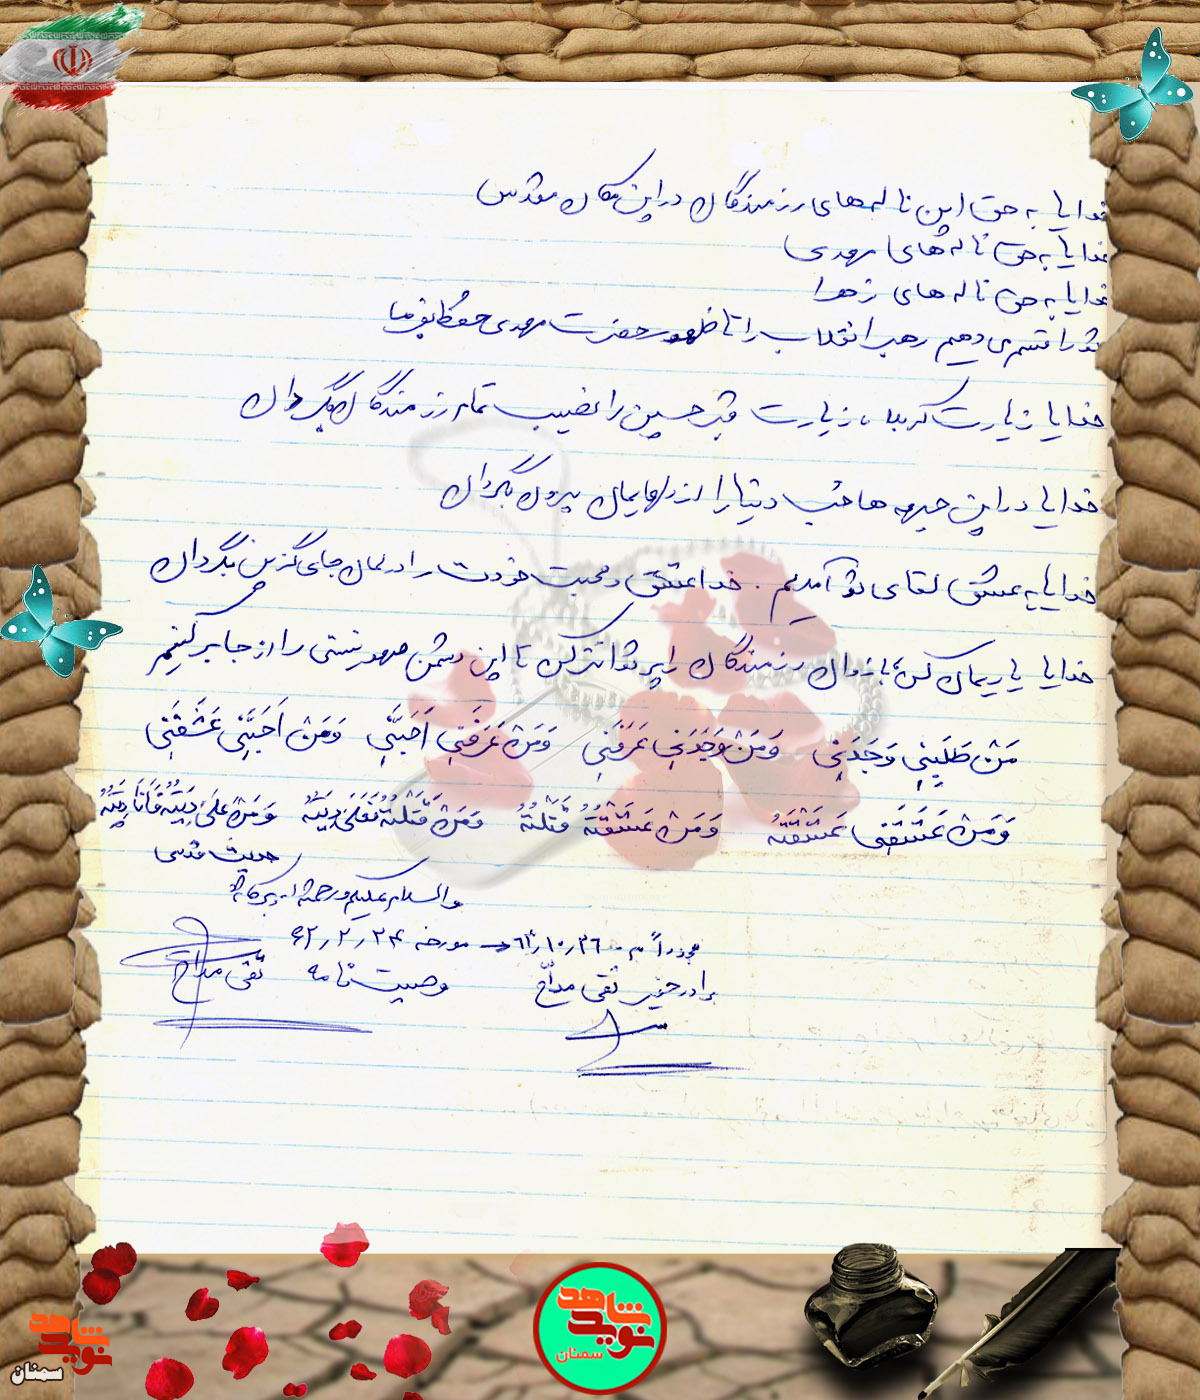 خدایا به حق این ناله‌های رزمندگان در این مکان مقدس
خدایا به حق ناله‌های مهدی
خدایا به حق ناله های زهرا
تو را قسم می دهیم رهبر انقلاب را تا ظهور حضرت مهدی حفظ بفرما
خدایا زیارت کربلا، زیارت قبر حسین را نصیب تمام رزمندگان بگردان
خدایا در این جبهه ها حُب دنیا را از دلهایمان بیرون بگردان
خدایا به عشق لقای تو آمدیم. خدا عشق و محبت خودت را در دلمان جای گزین بگردان
خدایا یاریمان کن، بازوان رزمندگان را پر توانتر کن تا این دشمن صهیونیستی را از جا برکنیم
مَنْ طَلَبَنِی وَجَدَنِی وَمَنْ وَجَدَنِی عَرَفَنِی وَمَنْ عَرَفَنِی اَحَبَّنِی وَمَنْ اَحَبَّنِی عَشَقَنِی
وَمَنْ عَشَقَنِی عَشَقْتَهُ وَمَنْ عَشَقْتَهُ قَتَلْتَهُ وَمَنْ قَتَلْتَهُ فَعَلَیَّ دِیَتَهُ وَمَنْ عَلَیَّ دِیَتَهُ فَاَنَا دِیَتَهُ
حدیث قدسی
والسلام علیکم و رحمة الله و برکاته
مجدداً ۶۲/۱۰/۲۶ مورخه ۶۲/۲/۲۴
برادر حقیر تقی مداح وصیت نامه تقی مداح
نوید شاهد
سمنان
نوید شاهد
سمنان